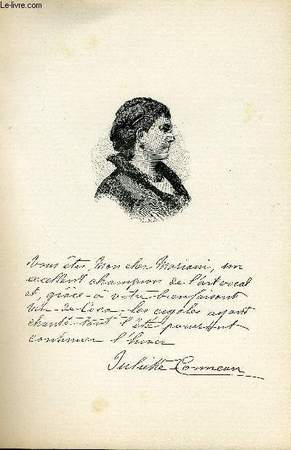 Le-livre.com
Vous êtes, Mon cher Mariani, un
excellent champion de l'art vocal
et, grâce à votre bienfaisant
Vin de Coca les cigales ayant
chanté tout l'été pourront
continuer l'hiver
Juliette Conneau